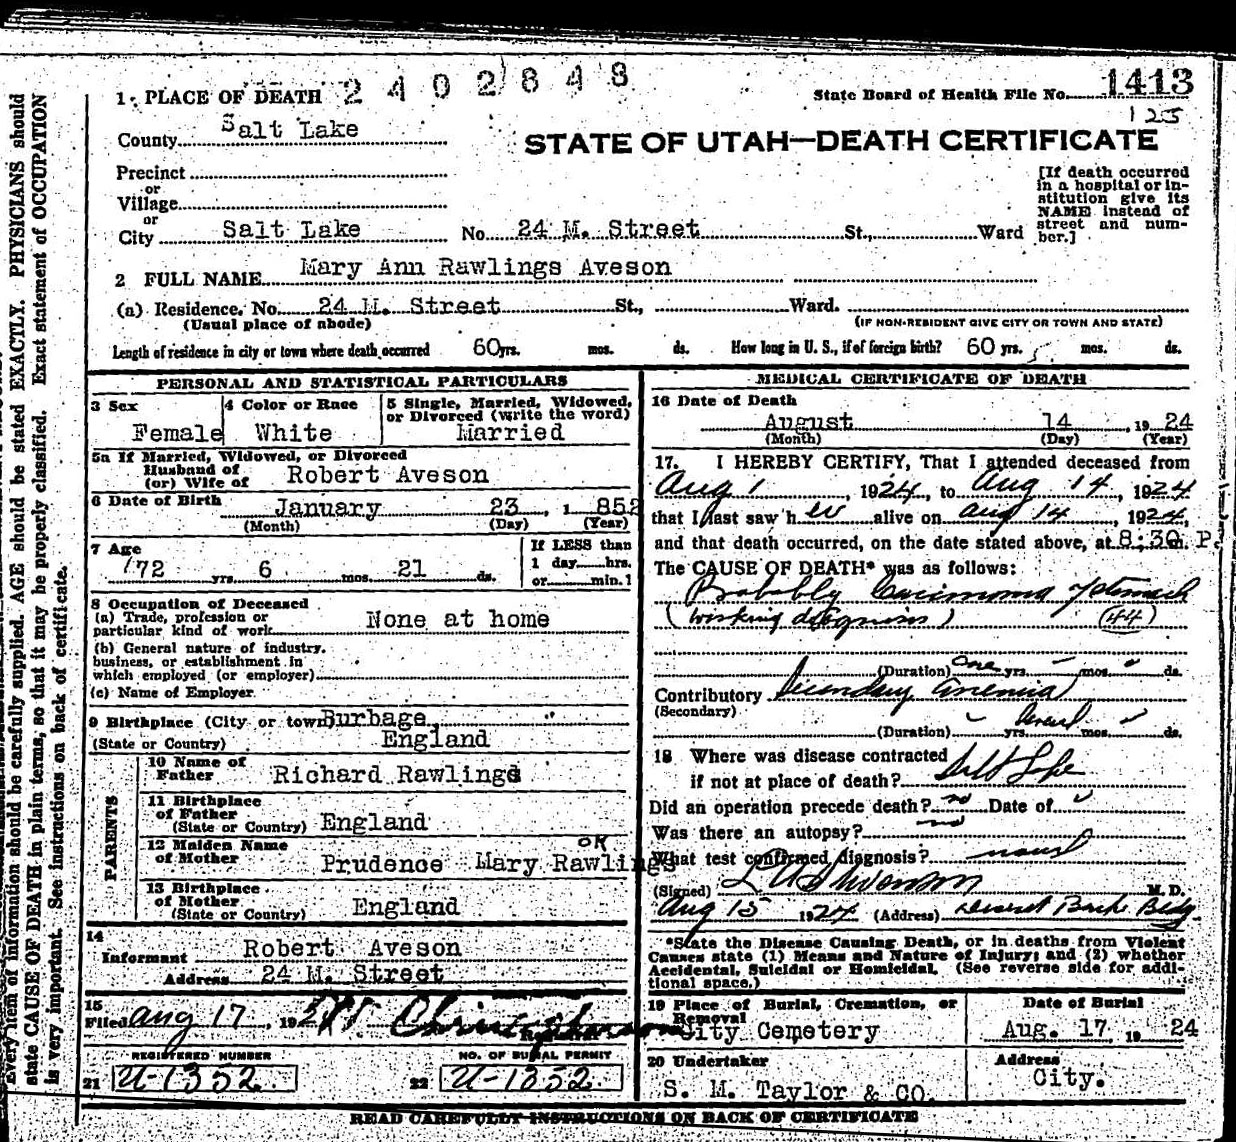 2402848
1. PLACE OF DEATH
State Board of Health File No. 1413
125
County Salt Lake
STATE OF UTAH—DEATH CERTIFICATE
Precinct
or
Village
or
City Salt Lake No. 24 M. Street St., Ward
[If death occurred
in a hospital or in-
stitution give its
NAME instead of
street and num-
ber.]
2 FULL NAME Mary Ann Rawlings Aveson
(a) Residence. No. 24 M. Street St., Ward.
(Usual place of abode)
(IF NON-RESIDENT GIVE CITY OR TOWN AND STATE)
Length of residence in city or town where death occurred 60 yrs. mos. ds. How long in U. S., if of foreign birth? 60 yrs. mos. ds.
PERSONAL AND STATISTICAL PARTICULARS
3 Sex
Female
4 Color or Race
White
5 Single, Married, Widowed,
or Divorced (write the word)
Married
5a If Married, Widowed, or Divorced
Husband of
(or) Wife of Robert Aveson
6 Date of Birth
January 23, 1852
(Month) (Day) (Year)
7 Age
72 yrs. 6 mos. 21 ds.
If LESS than
1 day hrs.
or min.
8 Occupation of Deceased
(a) Trade, profession or
particular kind of work None at home
(b) General nature of industry,
business, or establishment in
which employed (or employer)
(c) Name of Employer
9 Birthplace (City or town) Burbage,
(State or Country) England
PARENTS
10 Name of
Father Richard Rawlings
11 Birthplace
of Father
(State or Country) England
12 Maiden Name
of Mother Prudence Mary Rawlings
OK
13 Birthplace
of Mother
(State or Country) England
14
Informant Robert Aveson
Address 24 M. Street
15
Filed Aug 17, 1924
Registrar
REGISTERED NUMBER
21 U-1352
NO. OF BURIAL PERMIT
22 U-1352
MEDICAL CERTIFICATE OF DEATH
16 Date of Death
August 14, 1924
(Month) (Day) (Year)
17. I HEREBY CERTIFY, That I attended deceased from
Aug 1, 1924, to Aug 14, 1924
that I last saw her alive on Aug 14, 1924,
and that death occurred, on the date stated above, at 8:30 m. P.
The CAUSE OF DEATH* was as follows:
Probably Carcinoma of stomach
(working diagnosis) (44)
(Duration) one yrs. mos. ds.
Contributory Secondary Anemia
(Secondary)
(Duration) yrs. several mos. ds.
18 Where was disease contracted
if not at place of death? Salt Lake
Did an operation precede death? no Date of
Was there an autopsy? no
What test confirmed diagnosis? usual
(Signed) M. D.
Aug 15 1924 (Address) Deseret Bank Bldg
*State the Disease Causing Death, or in deaths from Violent
Causes state (1) Means and Nature of Injury; and (2) whether
Accidental, Suicidal or Homicidal. (See reverse side for addi-
tional space.)
19 Place of Burial, Cremation, or
Removal
City Cemetery
Date of Burial
Aug. 17, 1924
20 Undertaker
S. M. Taylor & CO.
Address
City.
READ CAREFULLY INSTRUCTIONS ON BACK OF CERTIFICATE
Every item of information should be carefully supplied. AGE should be stated EXACTLY. PHYSICIANS should
state CAUSE OF DEATH in plain terms, so that it may be properly classified. Exact statement of OCCUPATION
is very important. See instructions on back of certificate.